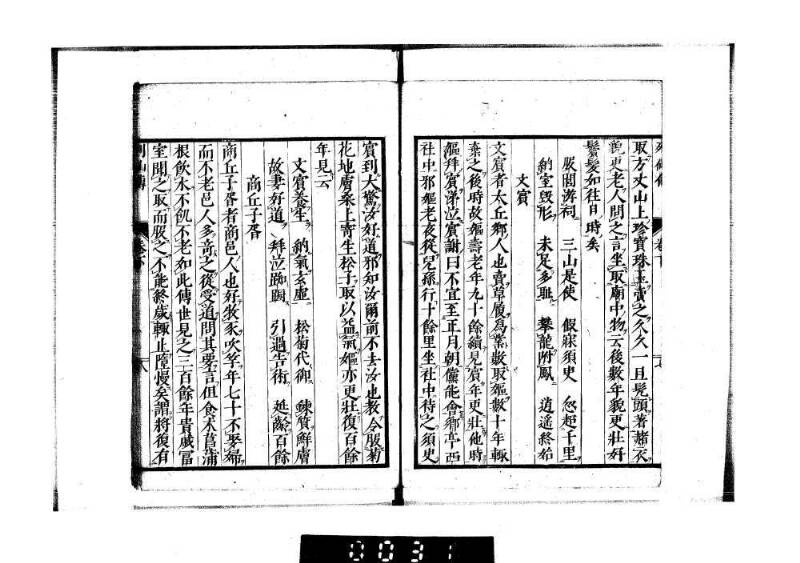 取方丈山上珍寶珠玉賣之久久一旦髡頭著赭衣
貌更老人問之言坐取廟中物云後數年貌更壯好
鬢髮如往日時矣
服閭游祠 三山是使 假寐須史 忽超千里
納室毀形 未足多恥 攀龍附鳳 逍遙終始
文賓
文賓者太丘鄉人也賣草履為業數取嫗數十年輒
棄之後時故嫗壽老年九十餘續見賓年更壯他時
嫗拜賓涕泣賓謝曰不宜至正月朝儻能會鄉亭西
社中邪嫗老夜從兒孫行十餘里坐社中待之須史
賓到大驚汝好道邪知汝爾前不去汝也教令服菊
花地膚桑上寄生松子取以益氣嫗亦更壯復百餘
年見云
文賓養生 納氣玄虛 松菊代御 鍊質鮮膚
故妻好道 拜泣踟躕 引過告術 延齡百餘
商丘子胥
商丘子胥者商邑人也好牧豕吹竽年七十不娶婦
而不老邑人多奇之從受道問其要言但食朮菖蒲
根飲水不飢不老如此傳世見之三百餘年貴戚富
室聞之取而服之不能終歲輒止墮慢矣謂將復有
卷下
八
0031